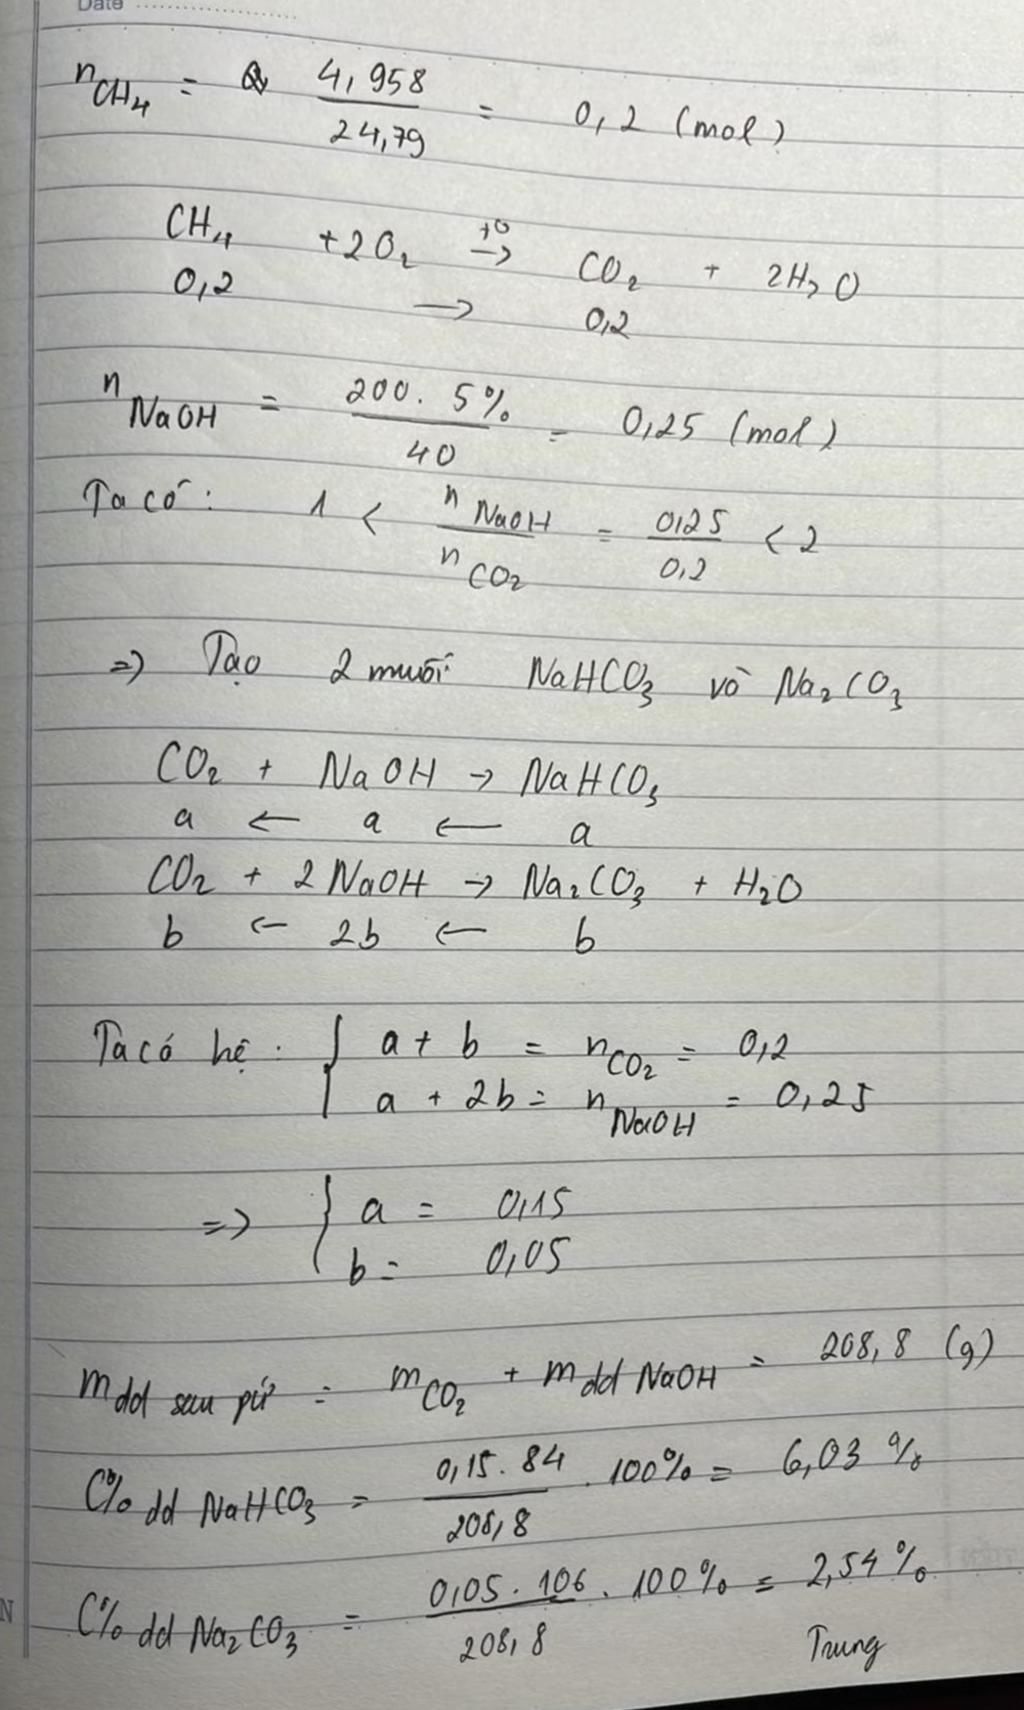 Date
n CH4 = 4,958 / 24,79 = 0,2 (mol)
CH4 + 2O2 t° → CO2 + 2H2O
0,2 → 0,2
n NaOH = 200 . 5% / 40 = 0,25 (mol)
Ta có : 1 < n NaOH / n CO2 = 0,25 / 0,2 < 2
=> Tạo 2 muối NaHCO3 và Na2CO3
CO2 + NaOH → NaHCO3
a ← a ← a
CO2 + 2NaOH → Na2CO3 + H2O
b ← 2b ← b
Ta có hệ : { a + b = nCO2 = 0,2
a + 2b = nNaOH = 0,25
=> { a = 0,15
b = 0,05
m dd sau pứ = mCO2 + m dd NaOH = 208,8 (g)
C% dd NaHCO3 = 0,15 . 84 / 208,8 . 100% = 6,03 %
C% dd Na2CO3 = 0,05 . 106 / 208,8 . 100% = 2,54 %
Trung